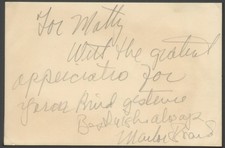 For Matty
With the gratest
appreciatio for
your kind gesture
Best wishes always
Marlon Brando